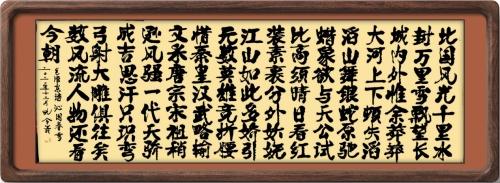 北国风光千里冰
封万里雪飘望长
城内外惟余莽莽
大河上下顿失滔
滔山舞银蛇原驰
蜡象欲与天公试
比高须晴日看红
装素裹分外妖娆
江山如此多娇引
无数英雄竞折腰
惜秦皇汉武略输
文采唐宗宋祖稍
逊风骚一代天骄
成吉思汗只识弯
弓射大雕俱往矣
数风流人物还看
今朝
毛泽东词沁园春雪